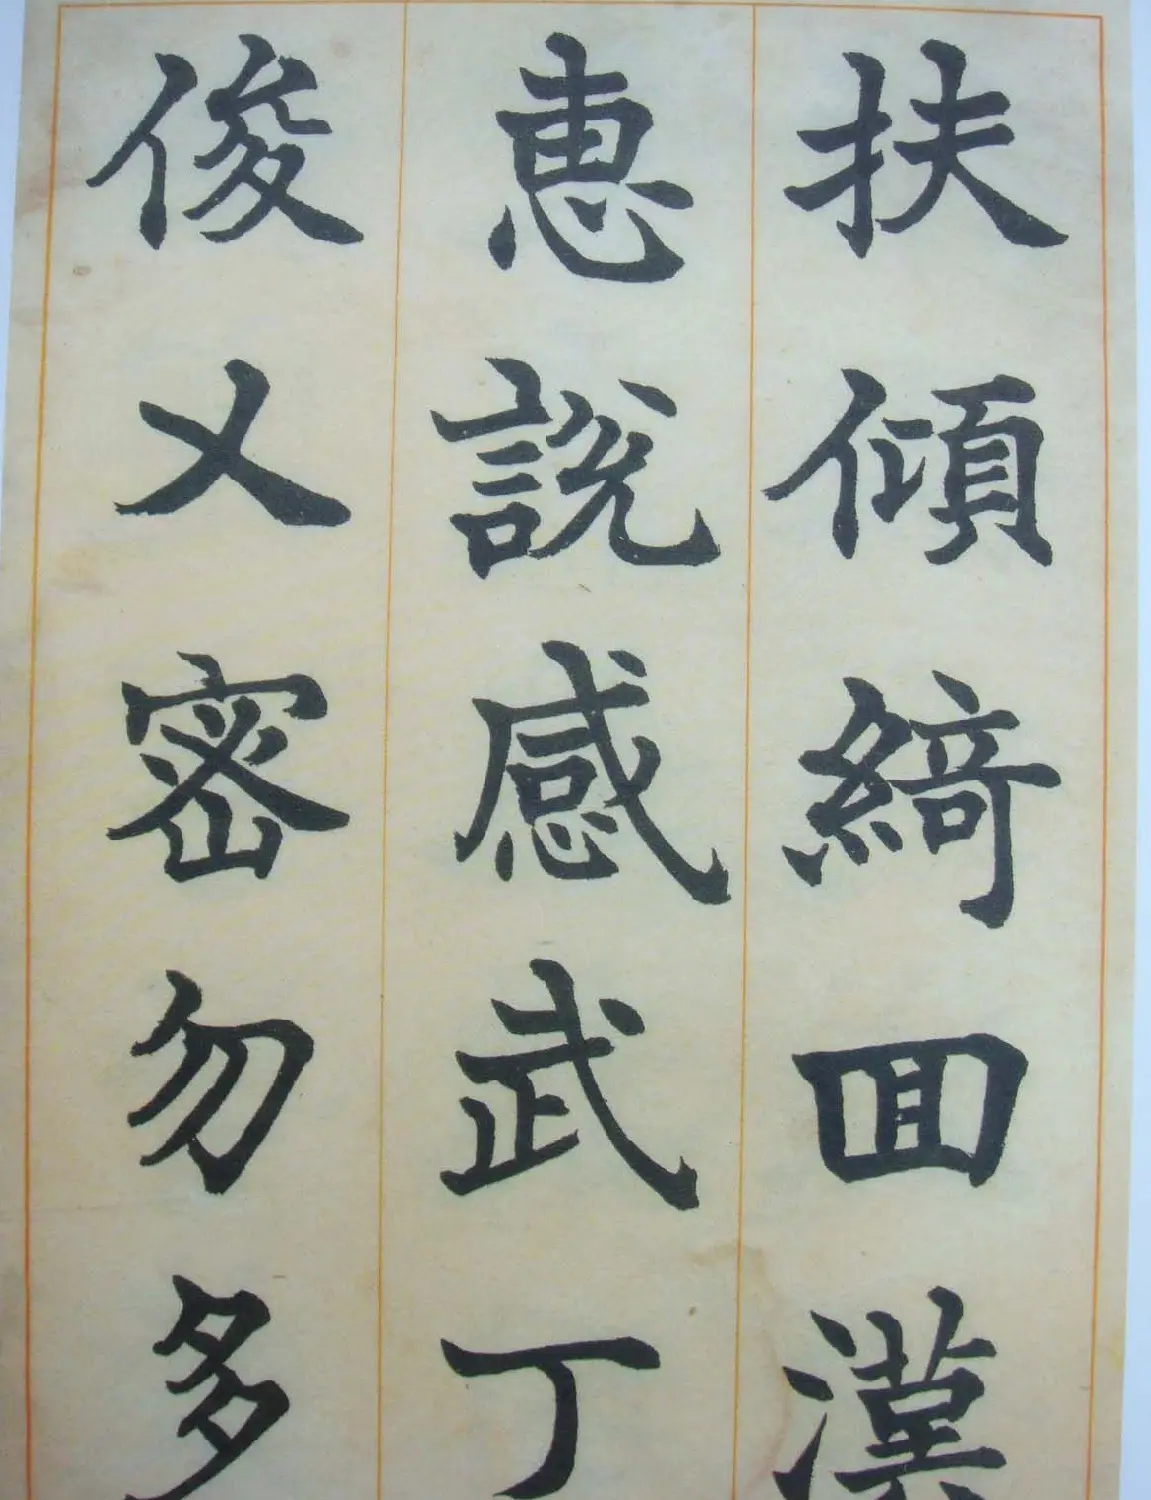 扶傾綺回漢
惠說感武丁
俊乂密勿多